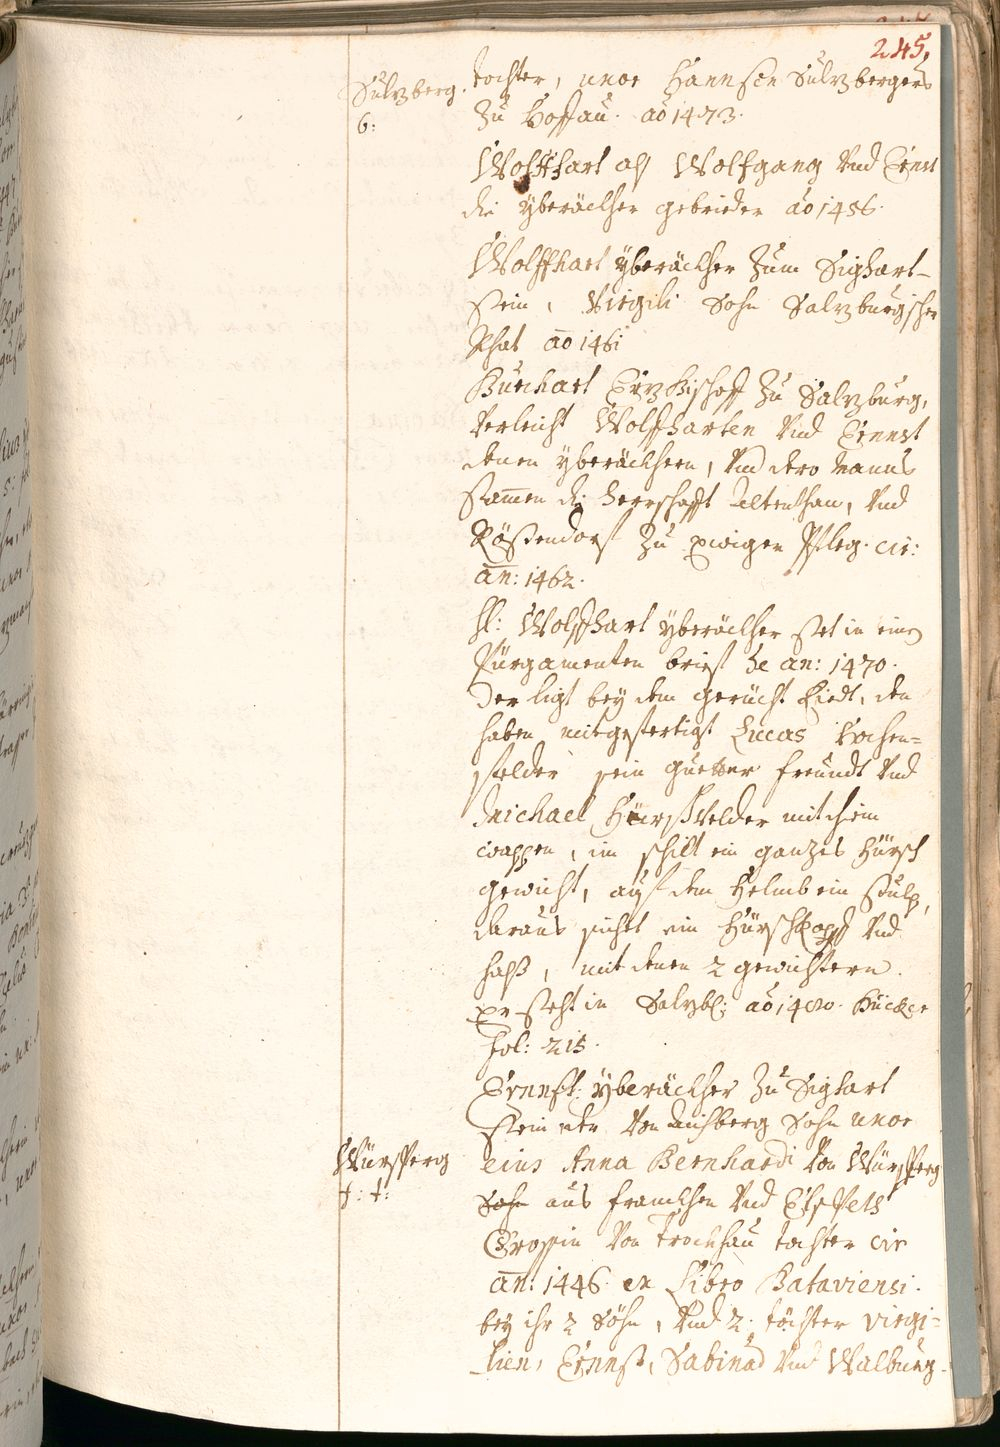 245.
Sulzberg.
6:
tochter, uxor Hannsen Sulzbergers
Zu Hoffau. ao 1473.
Wolffhart als Wolfgang Vnd Ernst
die Yberäckher gebrieder ao 1456.
Wolffhart Yberäckher Zum Sighart-
stein, Virgili Sohn Salzburgischer
Rhat ao 1461
Burchart ErzBischoff Zu Salzburg,
Verleicht Wolffharten Vnd Ernst
denen Yberäckhern, Vnd dero Manns
stammen die Herrschafft Altenthan, Vnd
Zu Ewigen Pfleg. cir:
an: 1462.
H: Wolffhart Yberäckher stet in einen
Pürgamenten brieff de an: 1470.
Der ligt bey dem gericht Riedt, den
haben mitgefertigt Lucas Hochen-
felder sein guetter freundt Vnd
Michael Hürschvelder mit dem
wappen, im schilt ein ganzes Hürsch
gewicht, auf dem Helmb ein stulp,
daraus sicht ein Hürschkopff Vnd
halß, mit denen 2 gewichtern.
Er steht in Salzb: ao 1480.
fol: 215.
Ernnst: Yberäckher Zu Sighart
stein Von Sohn uxor
Würsperg
†: †:
eius Anna Bernhardi Von Würsperg
Sohn aus franckhen Vnd Elspeth
Grossin Von Trockhau tochter cir
an: 1446. ex Libro Bataviensi.
bey ihr 2 Söhn, Vnd 2. töchter Virgi-
lien, Ernnst, Sabina Vnd Walburg.